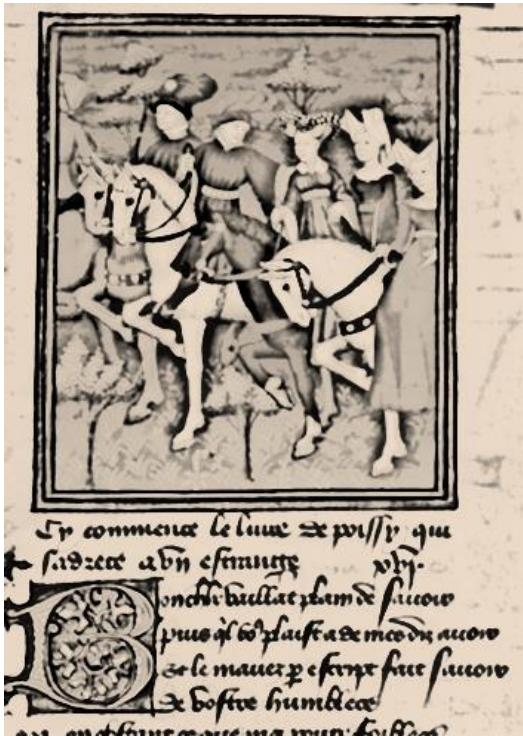 Cy commence le livre de poissy qui
sadrece a vn estrange xvi.
Bon chlr vaillāt plain de sauoir
puis ql vo9 plaist a de mes diz auoir
Et le mauez p escript fait sauoir
De vostre humblece